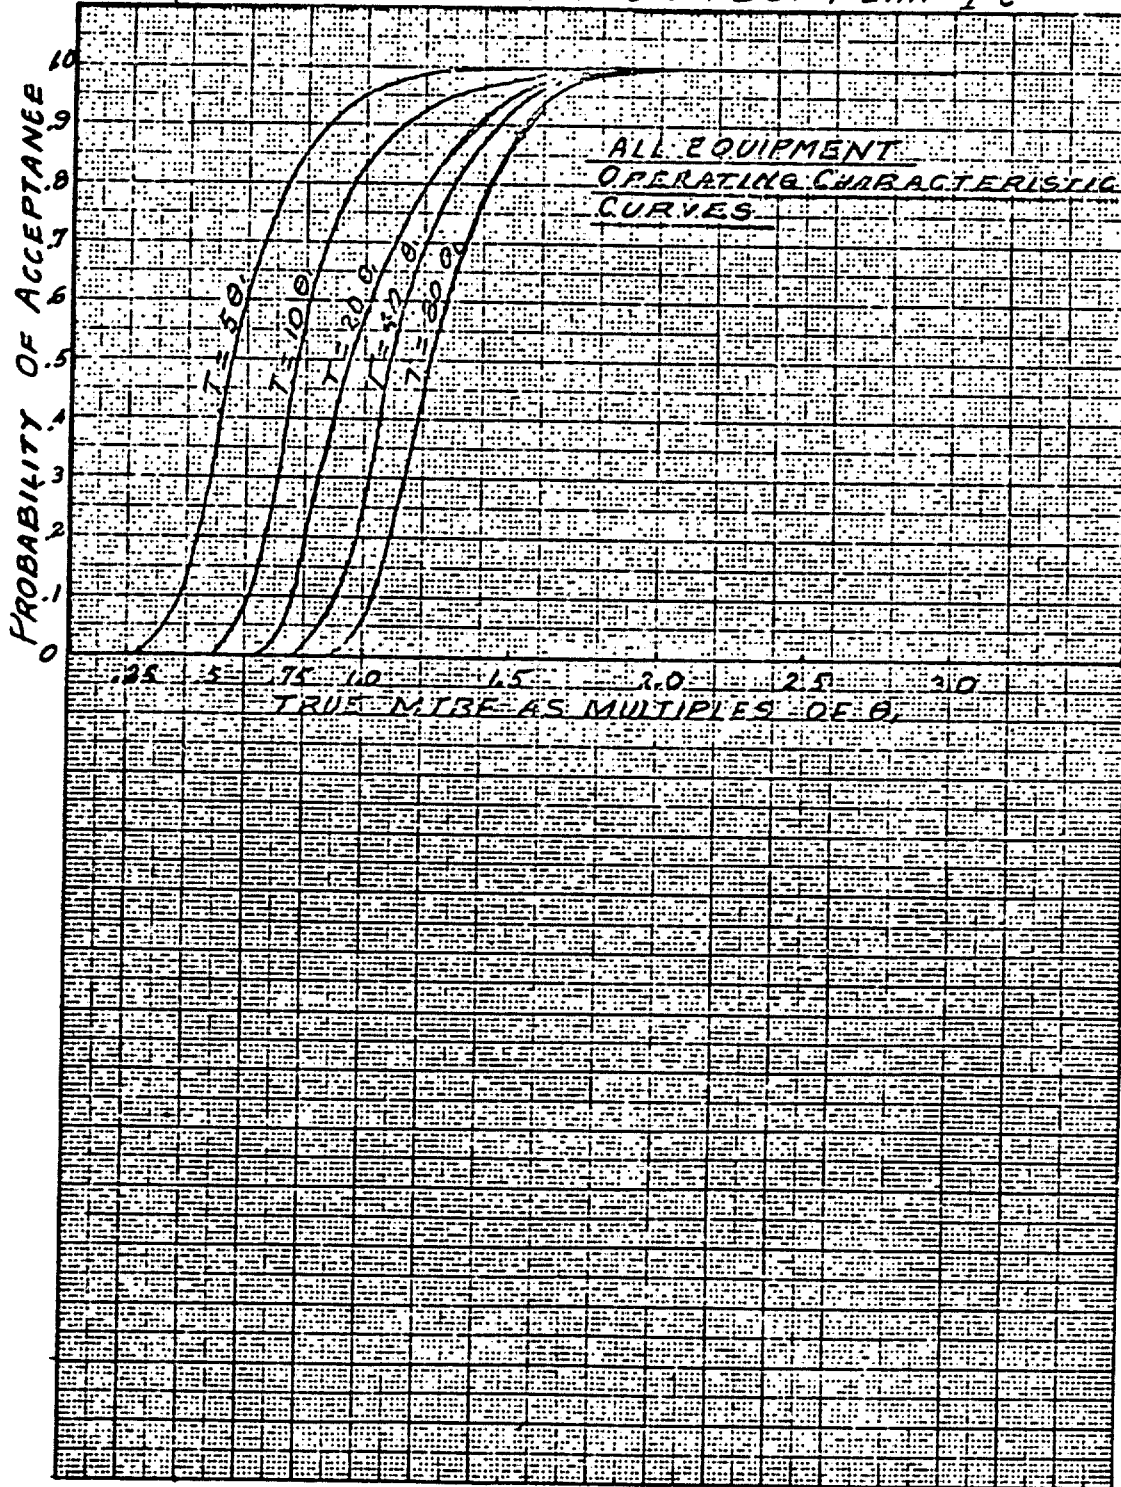 PLAN I
1.0
PROBABILITY OF ACCEPTANCE
.9
.8
.7
.6
.5
.4
.3
.2
.1
0
ALL EQUIPMENT
OPERATING CHARACTERISTIC
CURVES
T = 5θ₁
T = 10 θ₁
T = 20 θ₁
T = 40 θ₁
T = 80 θ₁
.25 .5 .75 1.0 1.5 2.0 2.5 3.0
TRUE MTBF AS MULTIPLES OF θ₁